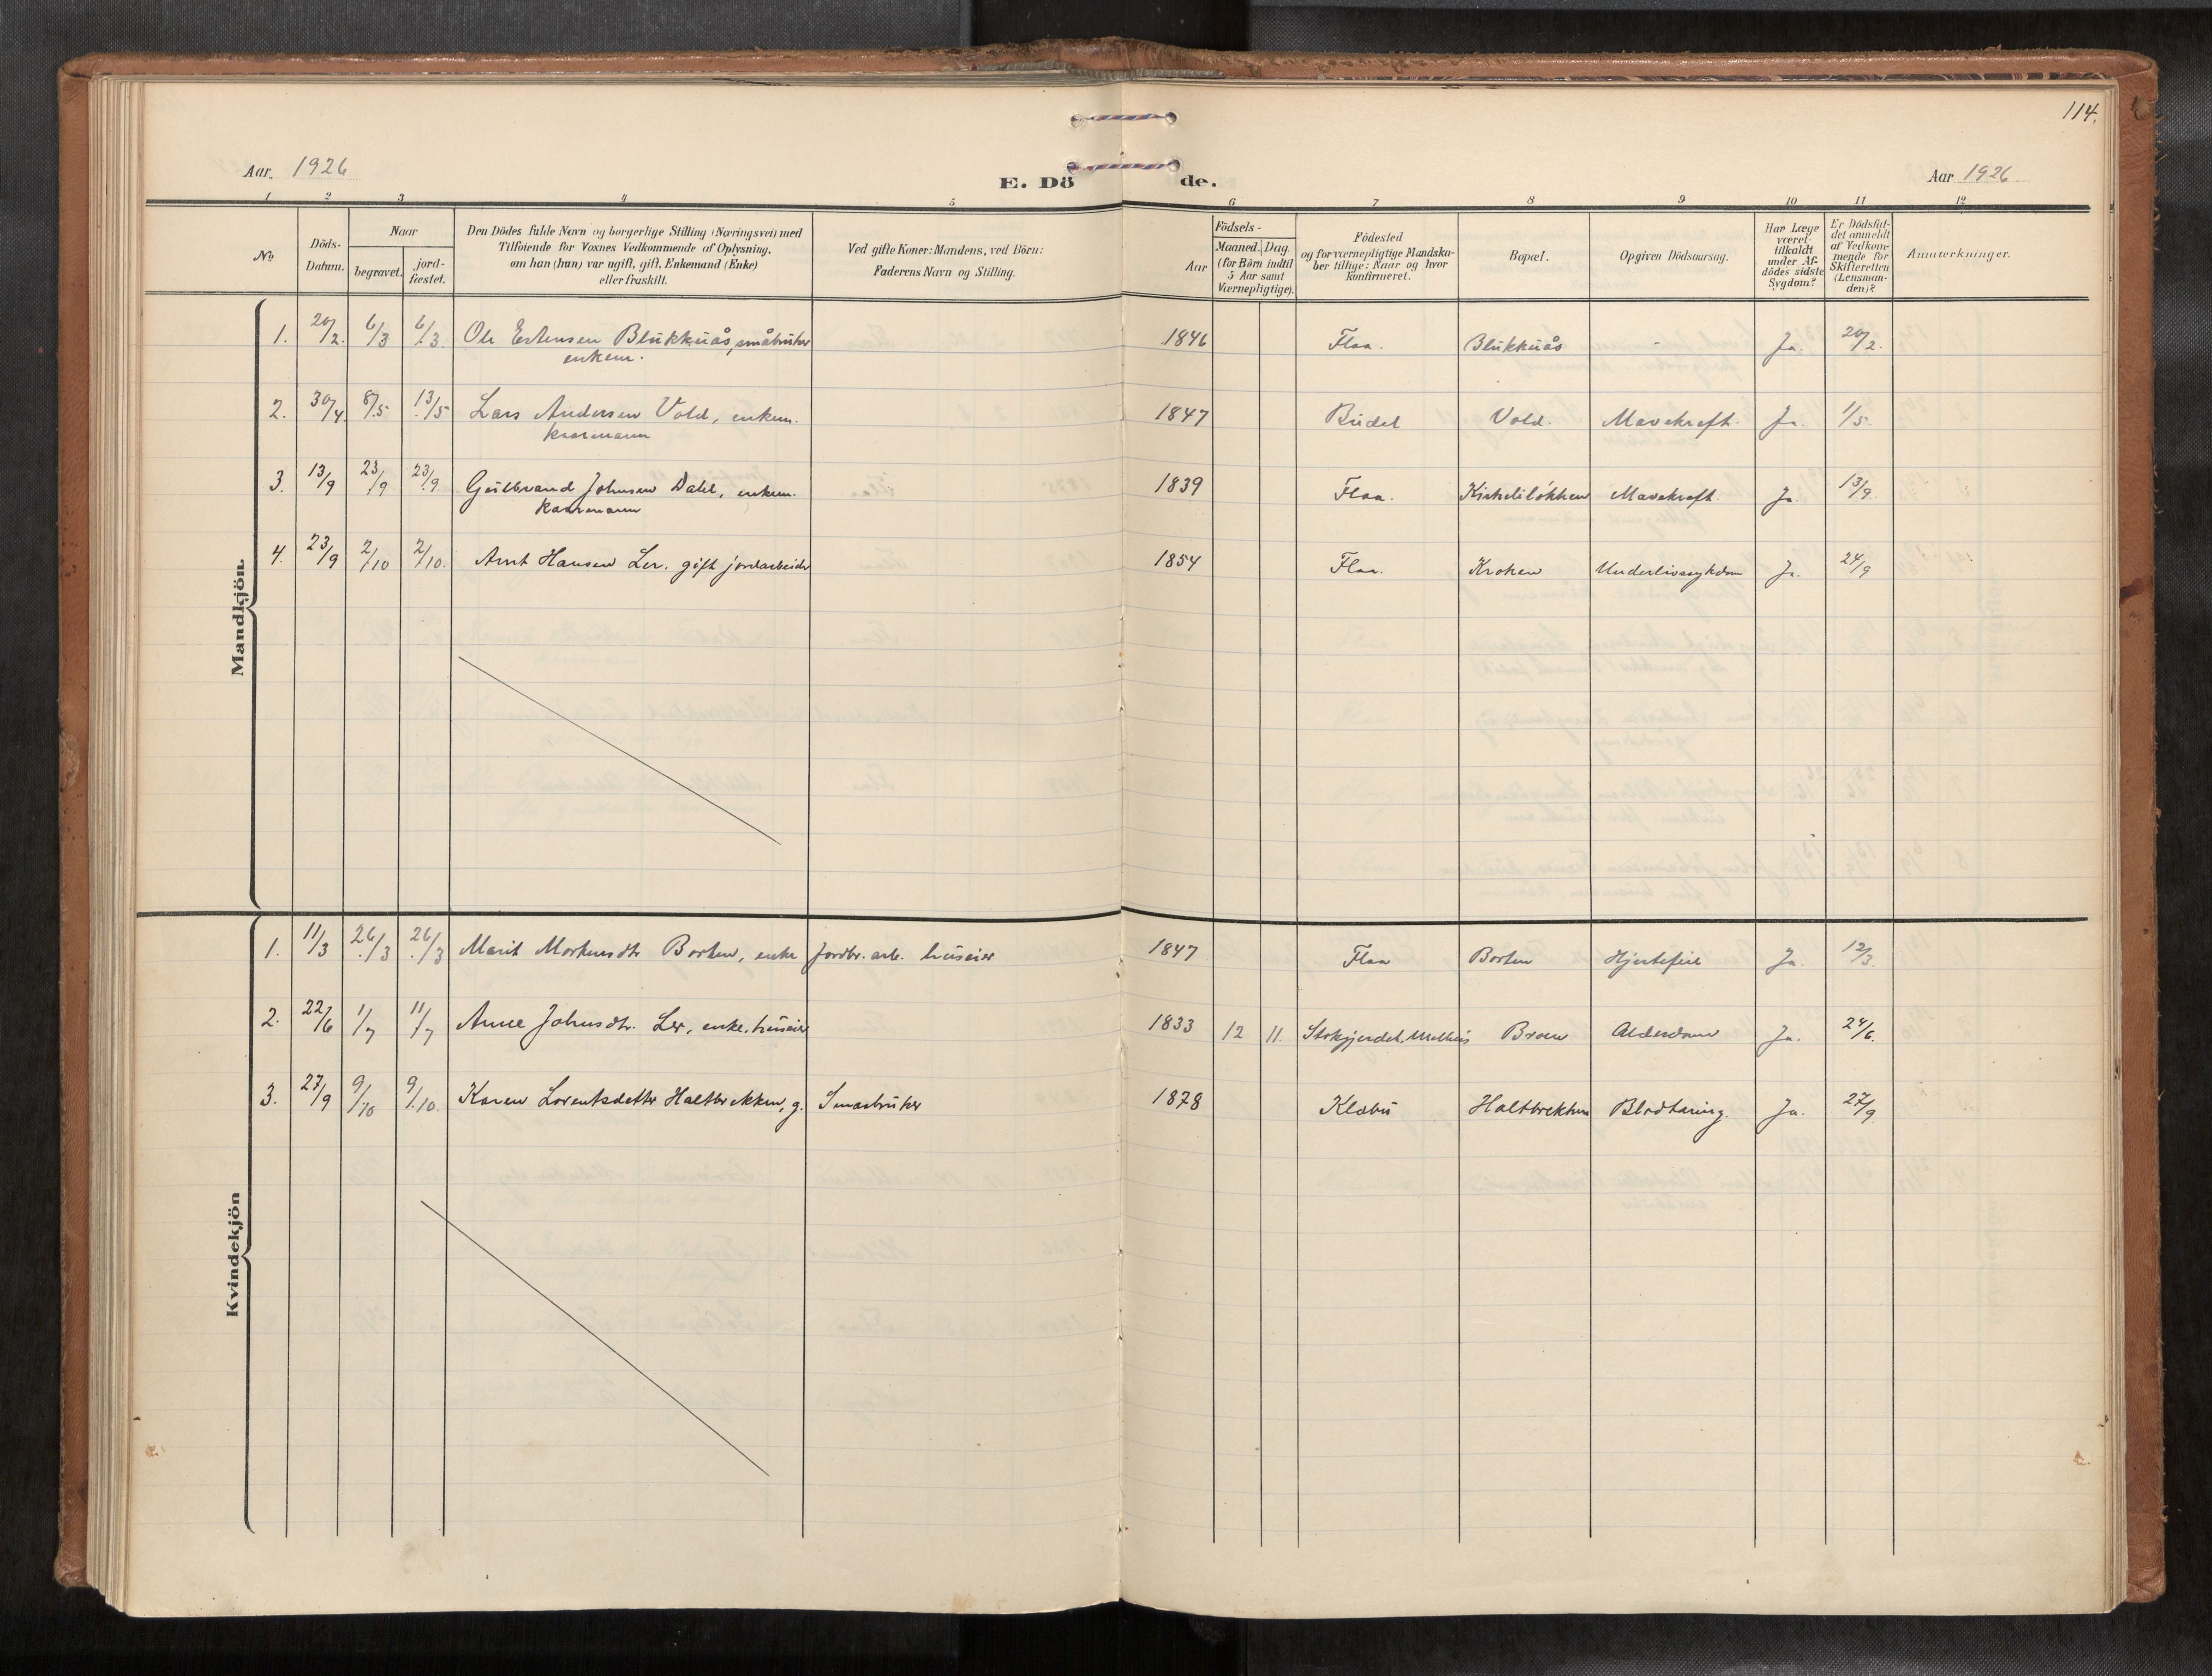 114.
Aar. 1926
E. Dö de.
Aar 1926
1 2 3 4 5 6 7 8 9 10 11 12
No
Döds-Datum.
Naar
begravet.
jord-fæstet.
Den Dödes fulde Navn og borgerlige Stilling (Næringsvei) med
Tilföiende for Voxnes Vedkommende af Oplysning,
om han (hun) var ugift, gift, Enkemand (Enke)
eller fraskilt.
Ved gifte Koner: Mandens, ved Börn:
Faderens Navn og Stilling.
Födsels-
Aar
Maaned.
Dag.
(for Börn indtil
5 Aar samt
Værnepligtige).
Födested
og for værnepligtige Mandska-
ber tillige: Naar og hvor
konfirmeret.
Bopæl.
Opgiven Dödsaarsag.
Har Læge
været
tilkaldt
under Af-
dödes sidste
Sygdom?
Er Dödsfal-
det anmeldt
af Vedkom-
mende for
Skifteretten
(Lensman-
den)?
Anmærkninger.
Mandkjön.
1. 20/2. 6/3 6/3 Ole Estensen Blukkuås, småbruker 1846 Flaa. Blukkuås - Ja. 20/2.
enkem.
2. 30/4 8/5 13/5 Lars Andersen Vold, enkem. 1847 Budal Vold. Mavekræft. Ja. 1/5
kaarmann
3. 13/9 23/9 23/9 Gulbrand Johnsen Dahl, enkem. 1839 Flaa. Mavekræft Ja. 13/9
kaarmann
4. 23/9 2/10 2/10. Arnt Hansen Ler. gift jordarbeider 1854 Flaa. Kroken Underlivssykdom Ja. 24/9
Kvindekjön
1. 11/3 26/3 26/3 Marit Mortensdtr Borten, enke Jordbr. arb. huseier 1847 Flaa Borten Hjertefeil Ja. 12/3.
2. 22/6 1/7 11/7 Anne Johnsdtr. Ler, enke, huseier 1833 12 11. Melhus Broen Alderdom Ja. 24/6.
3. 27/9 9/10 9/10. Karen Lorentsdatter Haltbrekken, g. Smaabruker 1878 Klæbu Haltbrekken Blodtæring. Ja. 27/9